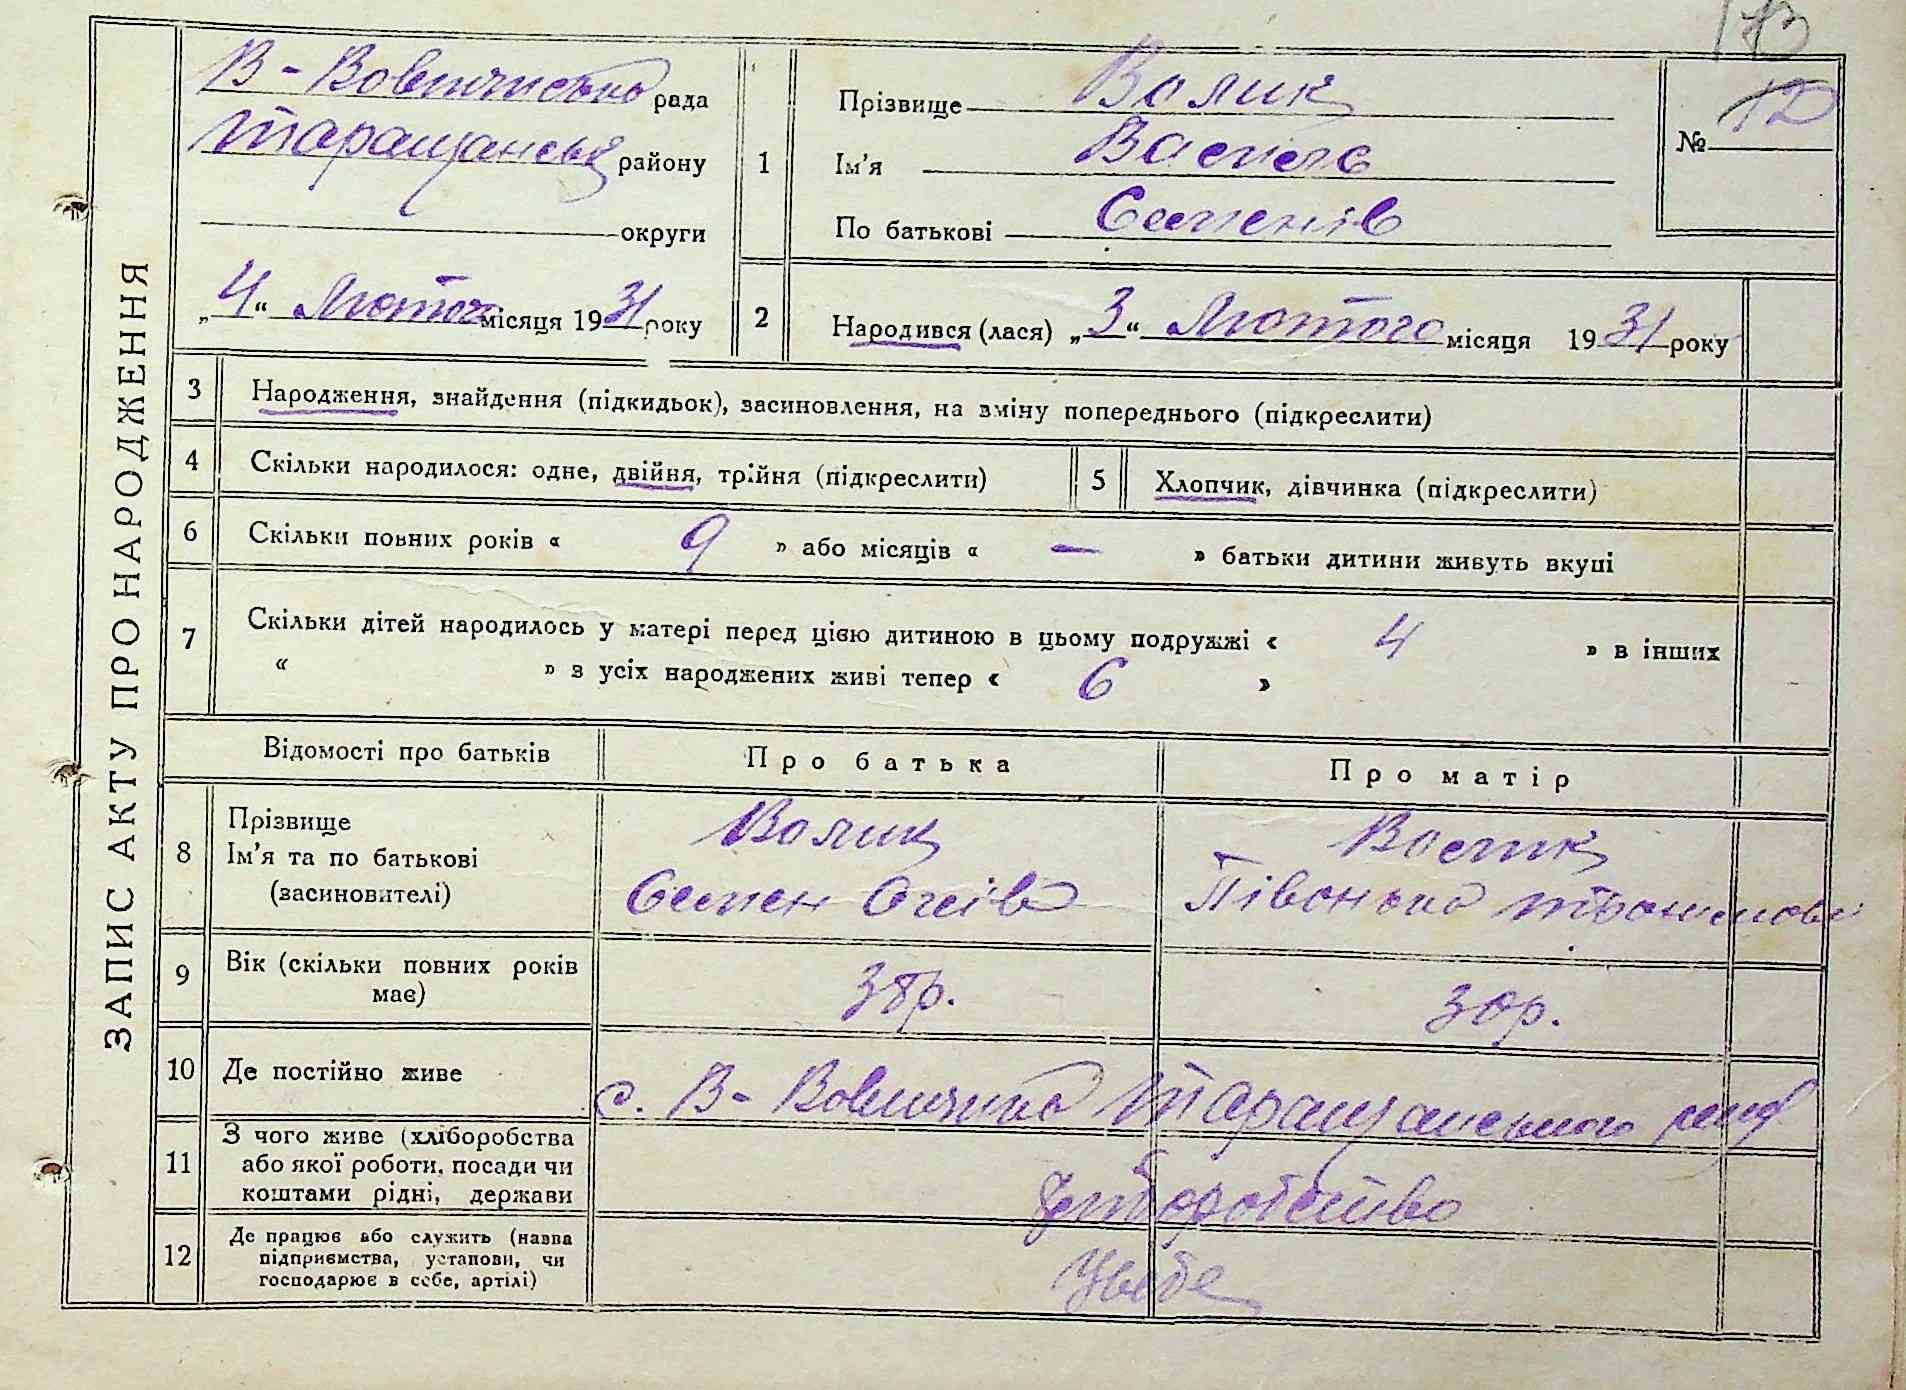 173
ЗАПИС АКТУ ПРО НАРОДЖЕННЯ
В-Вовнянська рада
Таращанськ району
округи
„4“ Лютого місяця 1931 року
1
Прізвище Волик
Ім'я Василь
По батькові Семенів
№ 12
2
Народився (лася) „3“ Лютого місяця 1931 року
3 Народження, знайдення (підкидьок), засиновлення, на зміну попереднього (підкреслити)
4 Скільки народилося: одне, двійня, трійня (підкреслити)
5 Хлопчик, дівчинка (підкреслити)
6 Скільки повних років « 9 » або місяців « — » батьки дитини живуть вкупі
7 Скільки дітей народилось у матері перед цією дитиною в цьому подружжі « 4 » в інших
« » з усіх народжених живі тепер « 6 »
Відомості про батьків Про батька Про матір
8 Прізвище
Ім'я та по батькові
(засиновителі)
Волик
Семен
Волик
9 Вік (скільки повних років
має)
38р. 30р.
10 Де постійно живе
с. В- Таращанського
11 З чого живе (хліборобства
або якої роботи, посади чи
коштами рідні, держави
Хліборобство
12 Де працює або служить (назва
підприємства, установи, чи
господарює в себе, артілі)
У себе